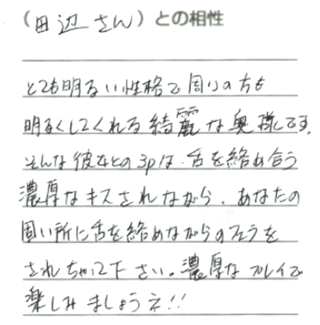 （田辺さん）との相性
とても明るい性格で周りの方も
明るくしてくれる綺麗な奥様です。
そんな彼女との3pは、舌を絡め合う
濃厚なキスされながら、あなたの
固い所に舌を絡めながらのフェラを
されちゃって下さい。濃厚なプレイで
楽しみましょうネ!!